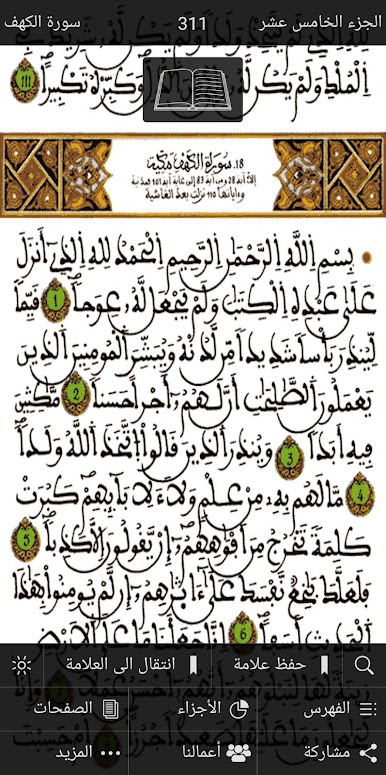 الجزء الخامس عشر 311 سورة الكهف
اِ۬لْمُلْكِ وَلَمْ يَكُن لَّهُۥ وَكَبِّرْهُ تَكْبِيراً 111
18. سورة الكهف مكية
إلا آية 28 ومن آية 83 إلى غاية آية 101 فمدنية
وءاياتها 110 نزلت بعد الغاشية
بِسْمِ اِ۬للَّهِ اِ۬لرَّحْمَٰنِ اِ۬لرَّحِيمِ اِ۬لْحَمْدُ لِلهِ اِ۬لذِےٓ أَنزَلَ
عَلَىٰ عَبْدِهِ اِ۬لْكِتَٰبَ وَلَمْ يَجْعَل لَّهُۥ عِوَجاً 1 قَيِّماً
لِّيُنذِرَ بَأْساً شَدِيداً مِّن لَّدُنْهُ وَيُبَشِّرَ اَ۬لْمُومِنِينَ اَ۬لذِينَ
يَعْمَلُونَ اَ۬لصَّٰلِحَٰتِ أَنَّ لَهُمُۥٓ أَجْراً حَسَناً 2 مَّٰكِثِينَ
فِيهِ أَبَداً 3 وَيُنذِرَ اَ۬لذِينَ قَالُواْ اُ۪تَّخَذَ اَ۬للَّهُ وَلَداً
4 مَّا لَهُم بِهِۦ مِنْ عِلْمٍ وَلَا لِأَبَآئِهِمْ كَبُرَتْ
كَلِمَةً تَخْرُجُ مِنَ اَفْوَٰهِهِمُۥٓ إِنْ يَّقُولُونَ إِلَّا كَذِباً 5
فَلَعَلَّكَ بَٰخِعٌ نَّفْسَكَ عَلَىٰٓ ءَاثٰ۪رِهِمُۥٓ إِن لَّمْ يُومِنُواْ بِهَٰذَا
اَ۬لْحَدِيثِ أَسَفاً 6 اِنَّا جَعَلْنَا مَا عَلَى اَ۬لَارْضِ
حفظ علامة انتقال الى العلامة
الفهرس الأجزاء الصفحات
مشاركة أعمالنا المزيد